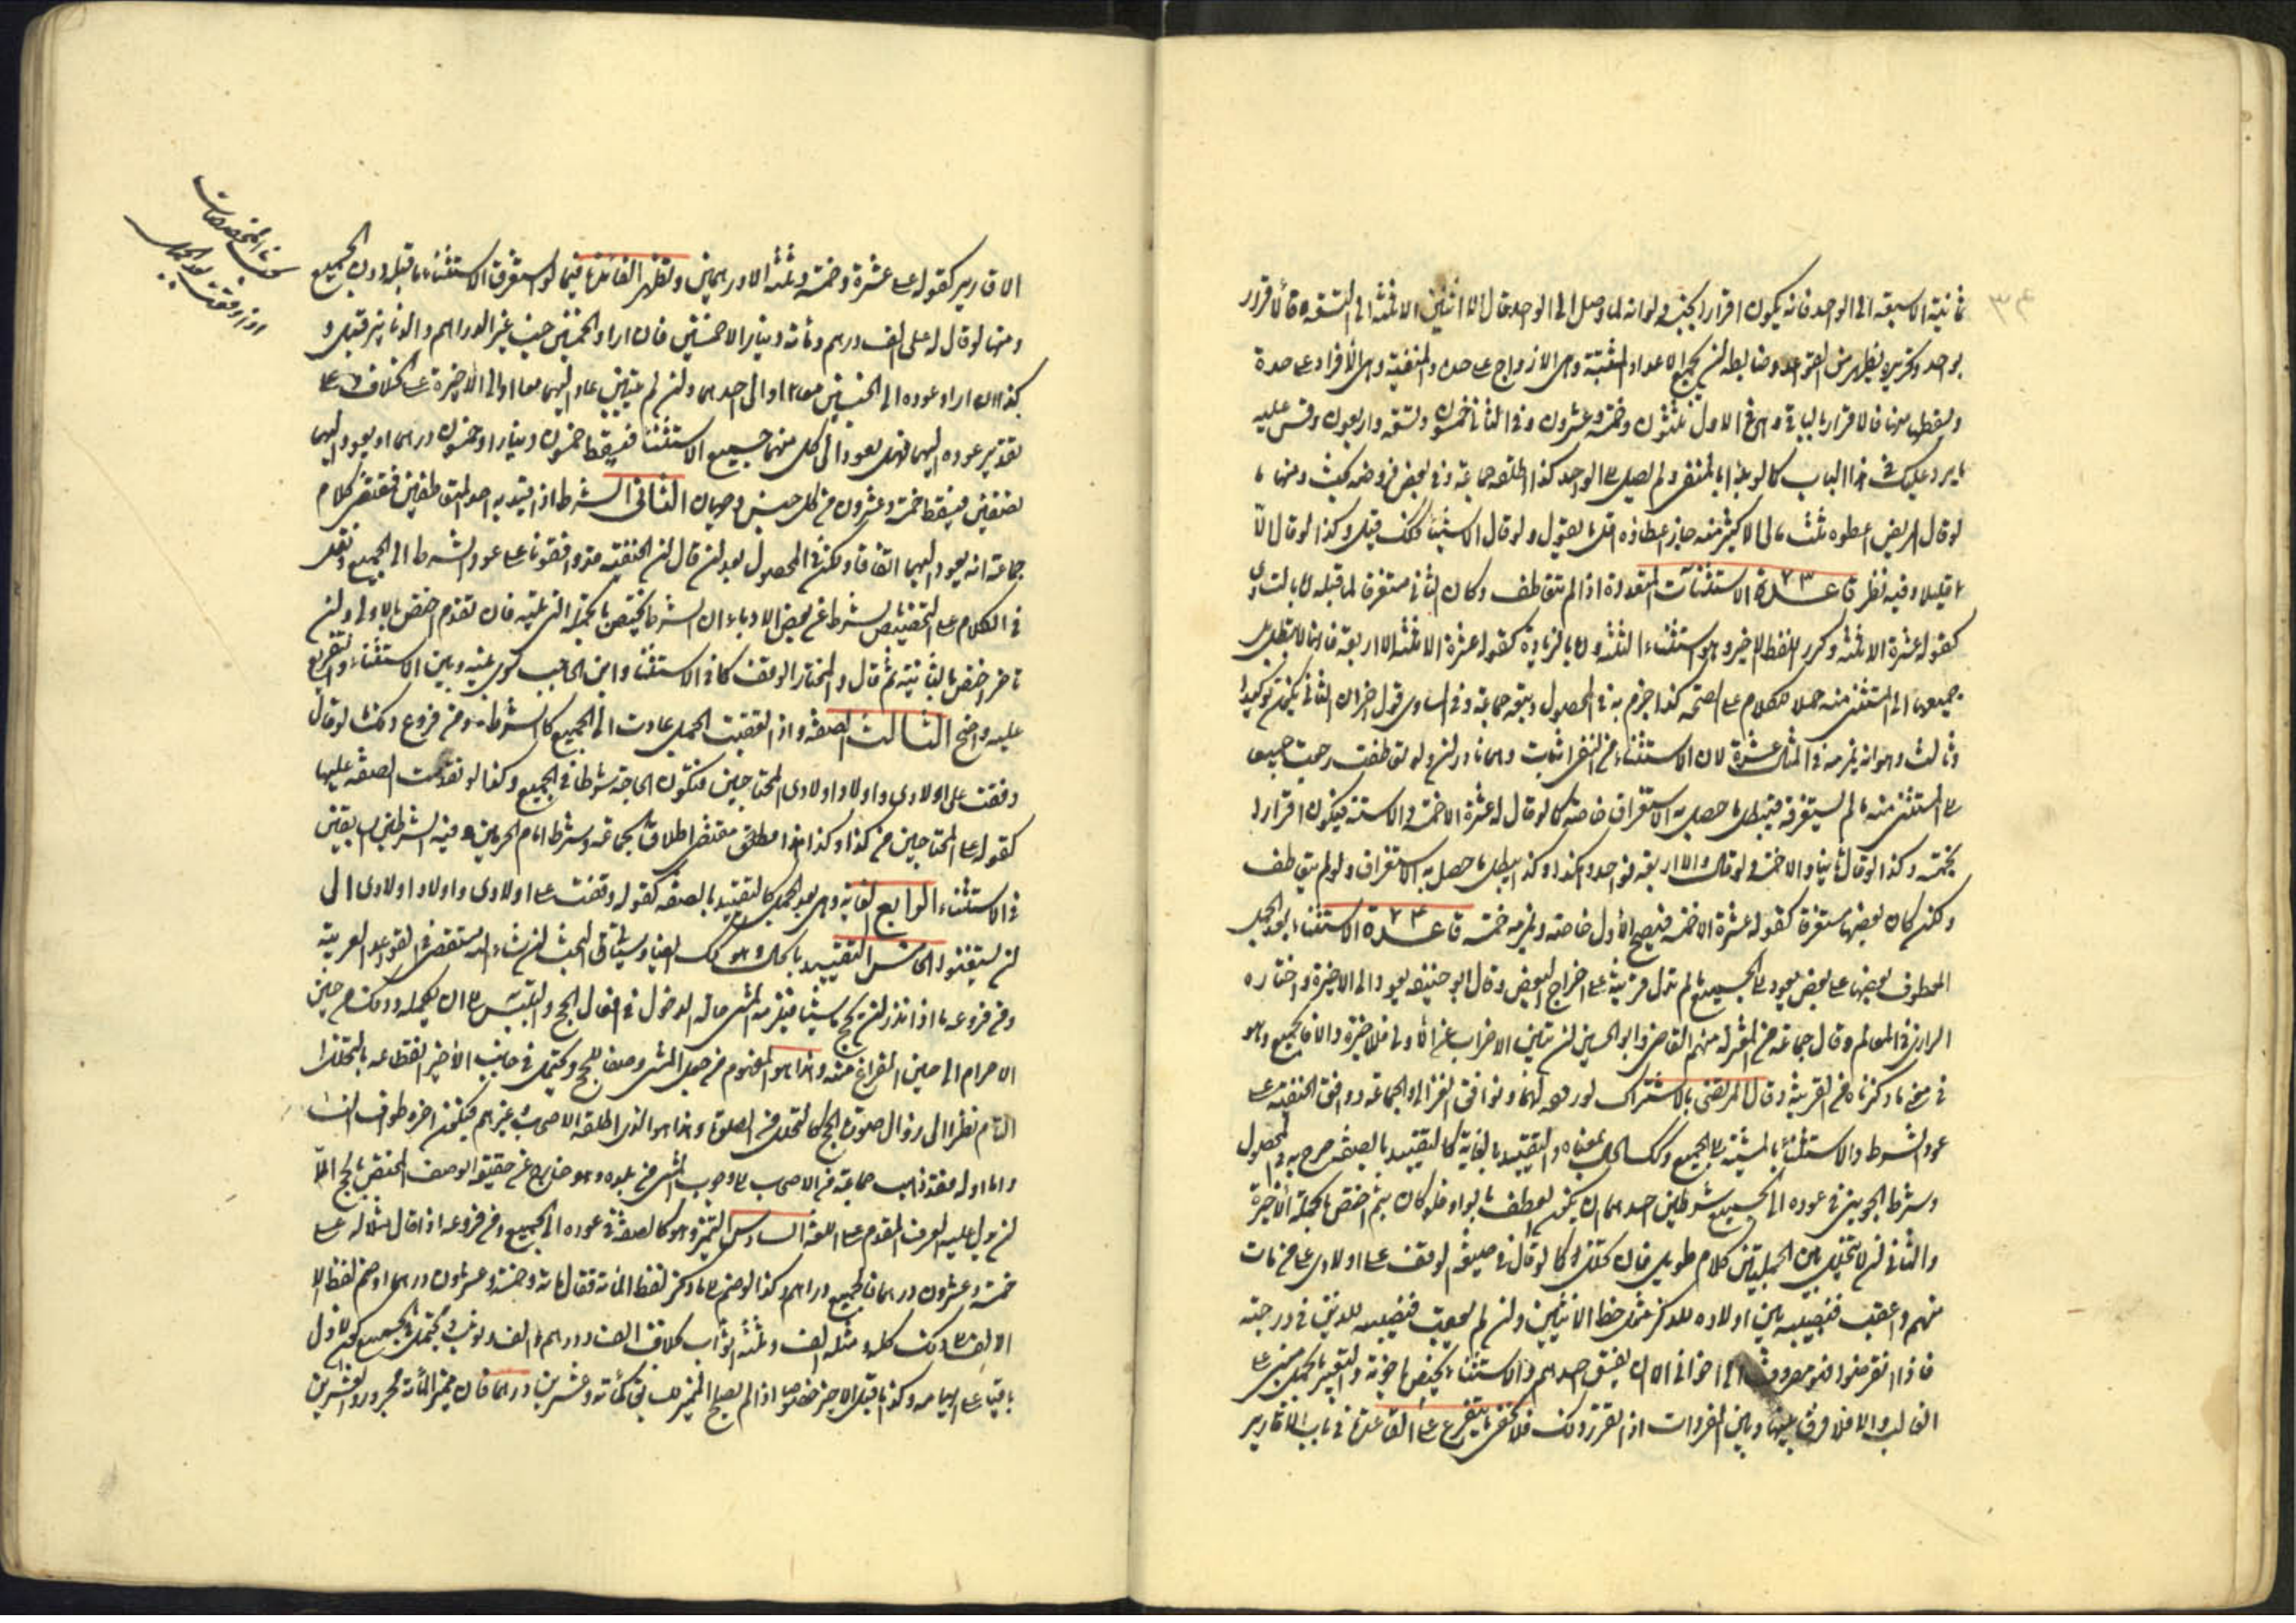 ثمانية الا سبعة الى الواحد فانه يكون اقرارا بخمسة ولو انه لما وصل الى الواحد قال الا اثنين الا ثلثة الى التسعة كان اقرارا
بواحد وتقريره يظهر من القواعد وضابطه ان يجمع الاعداد المثبتة وهى الازواج على حدة والمنفية وهى الافراد على حدة
ويسقطها منها فالاقرار بالباقى وهى فى الاول ثلثون وخمسة وعشرون وفى الثانى خمسون وتسعة واربعون وقس عليه
ما يرد عليك فى هذا الباب كما لو بدأ بالمنفى ولم يصل الى الواحد كذا اطلقه جماعة وفى بعض فروضه بحث ومنها ما
لو قال المريض اعطوه ثلث مالى الا كثير منه جاز اعطاؤه اقل ما يتمول ولو قال الا شيئا فكذلك قيل وكذا لو قال الا
قليلا وفيه نظر قاعدة ٧٣ الاستثنات المتعددة اذا لم تتعاطف وكان الثانى مستغرقا لما قبله اما بالتساوى
كقوله عشرة الا ثلثة وكرر اللفظ الاخير وهو استثناء الثلثة واما بالزيادة كقوله عشرة الا ثلثة الا اربعة فانها لا تبطل بل
جميعها الى المستثنى منه حملا للكلام على الصحة كذا جزم به فى المحصول وتبعه جماعة وفى المساوى قول اخر ان الثانى يكون توكيدا
وثالث وهو انه يلزمه فى المثال عشرة لان الاستثناء من النفى اثبات وهما نادران ولو تعاطفت رجعت جميعا
الى المستثنى منه ما لم يستغرقه فيبطل ما حصل به الاستغراق خاصة كما لو قال له عشرة الا خمسة والا ستة فيكون اقرارا
بخمسة وكذا لو قال ثانيا والا خمسة ولو قال والا اربعة فواحد وهكذا وكذا يبطل ما حصل به الاستغراق ولو لم يتعاطف
ولكن كان بعضها مستغرقا كقوله عشرة الا خمسة فيصح الاول خاصة ويلزمه خمسة قاعدة ٧٤ الاستثناء بعد الجمل
المعطوف بعضها على بعض يعود الى الجميع ما لم تدل قرينة على اخراج البعض وقال ابو حنيفه يعود الى الاخيرة واختاره
الرازى فى المعالم وقال جماعة من المعتزله منهم القاضى وابو الحسين ان تبين الاضراب عن الاولى فللاخيرة والا فللجميع وهو
فى معنى ما ذكرناه من القرينة وقال المرتضى بالاشتراك لوروده لهما وتوافق الغزالى والجماعة ووافق الحنفية على
عود الشرط والاستثناء بالمشيئة الى الجميع وكذلك الحال بمعناه والتقييد بالغاية كالتقييد بالصفة صرح به فى المحصول
وشرط الجوينى فى عوده الى الجميع شرطين احدهما ان يكون العطف بالواو فلو كان بثم اختص بالجملة الاخيرة
والثانى ان لا يتخلل بين الجملتين كلام طويل فان تخلل كما لو قال فى صيغة الوقف على اولادى على من مات
منهم واعقب فنصيبه بين اولاده للذكر مثل حظ الانثيين وان لم يعقب فنصيبه للذين فى درجته
فاذا انقرضوا فهو مصروف الى اخوانى الا ان يفسق احدهم فالاستثناء يختص باخوته والتعبير بالجمل مبنى على
الغالب والا فلا فرق بينها وبين المفردات اذا تقرر ذلك فلا يخفى ما يتفرع على القاعدة فى باب الاقارير
الاقارير كقوله على عشرة وخمسة وثلثة الا درهمين وتظهر الفائدة فيما لو استغرق الاستثناء ما قبله دون الجميع
ومنها لو قال له على الف درهم ومائة دينار الا خمسين فان اراد بالخمسين جنسا غير الدراهم والدنانير قبل و
كذا ان اراد عوده الى الجنسين معا او الى احدهما وان لم يتبين عاد اليهما معا او الى الاخيرة على الخلاف وعلى
تقدير عوده اليهما فهل يعود الى كل منهما جميع الاستثناء فيسقط خمسون دينارا وخمسون درهما او يعود اليهما
نصفين فيسقط خمسة وعشرون من كل جنس وجهان الثانى الشرط اذا قيد به احد المتعاطفين فمقتضى كلام
جماعة انه يعود اليهما اتفاقا ولكن فى المحصول بعد ان قال ان الحنفية قد وافقونا على عود الشرط الى الجميع ونقل
فى الكلام على التخصيص بالشرط عن بعض الادباء ان الشرط يختص بالجملة التى تليه فان تقدم اختص بالاولى وان
تاخر اختص بالثانية ثم قال والمختار الوقف كما فى الاستثناء وابن الحاجب سوى بينه وبين الاستثناء والتفريع
عليه واضح الثالث الصفة واذا تعقبت الجمل عادت الى الجميع كالشرط ومن فروع ذلك لو قال
وقفت على اولادى واولاد اولادى المحتاجين فتكون الحاجة شرطا فى الجميع وكذا لو تقدمت الصفة عليها
كقوله على المحتاجين من كذا وكذا هذا مطلق مقتضى اطلاق الجماعة وشرط امام الحرمين فيه الشرطين السابقين
فى الاستثناء الرابع الغاية وهى بعد الجمل كالتقييد بالصفة كقوله وقفت على اولادى واولاد اولادى الى
ان يستغنوا الخامس التقييد بالحال وهو كذلك ايضا وسياتى البحث ان شاء الله مستقصى فى القواعد العربية
ومن فروعه ما اذا نذر ان يحج ماشيا فيلزمه المشى حالة الدخول فى افعال الحج والتلبس الى ان يكمله وذلك من حين
الاحرام الى حين الفراغ منه وهذا هو المفهوم من جعل المشى وصفا للحج ويحتمل فى جانب الاخير انقطاعه بالتحلل
التام نظرا الى زوال صورة الحج كالتحلل من الصلوة وهذا هو الذى اطلقه الاصحاب وغيرهم فيكون اخره طواف النساء
واما اوله فقد ذهب جماعة من الاصحاب الى وجوب المشى من بلده وهو خارج عن حقيقة الوصف المختص بالحج الا
ان يدل عليه العرف المقدم على اللغة السادس التمييز وهو كالصفة فى عوده الى الجميع ومن فروعه اذا قال مثلا له على
خمسة وعشرون درهما فالجميع دراهم وكذا لو ضم الى ما ذكر لفظ المائة فقال مائة وخمسة وعشرون درهما او ضم لفظ الالف
الى ذلك كله ومثله الف وثلثة اثواب بخلاف الف ودرهم والف وثوب ويحتمل فى الجميع كون الاول
باقيا على ابهامه وكذا ما قبل الاخير خصوصا اذا لم يصلح المميز للسابق كمائة وعشرين درهما فان مميز المائة مجرور والعشرين